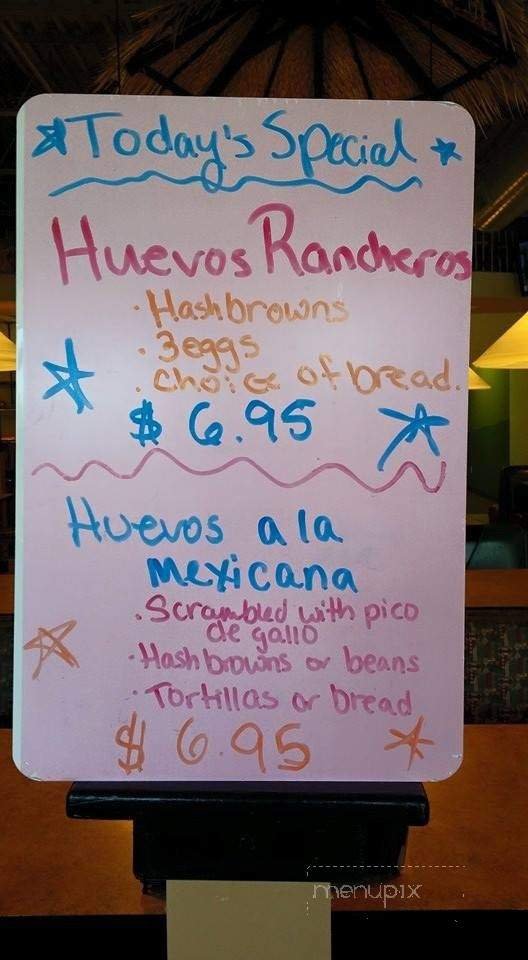 Today's Special
Huevos Rancheros
· Hashbrowns
· 3eggs
· choice of bread.
$ 6.95
Huevos a la
mexicana
· Scrambled with pico
de gallo
· Hashbrowns or beans
· Tortillas or bread
$ 6.95
menupix